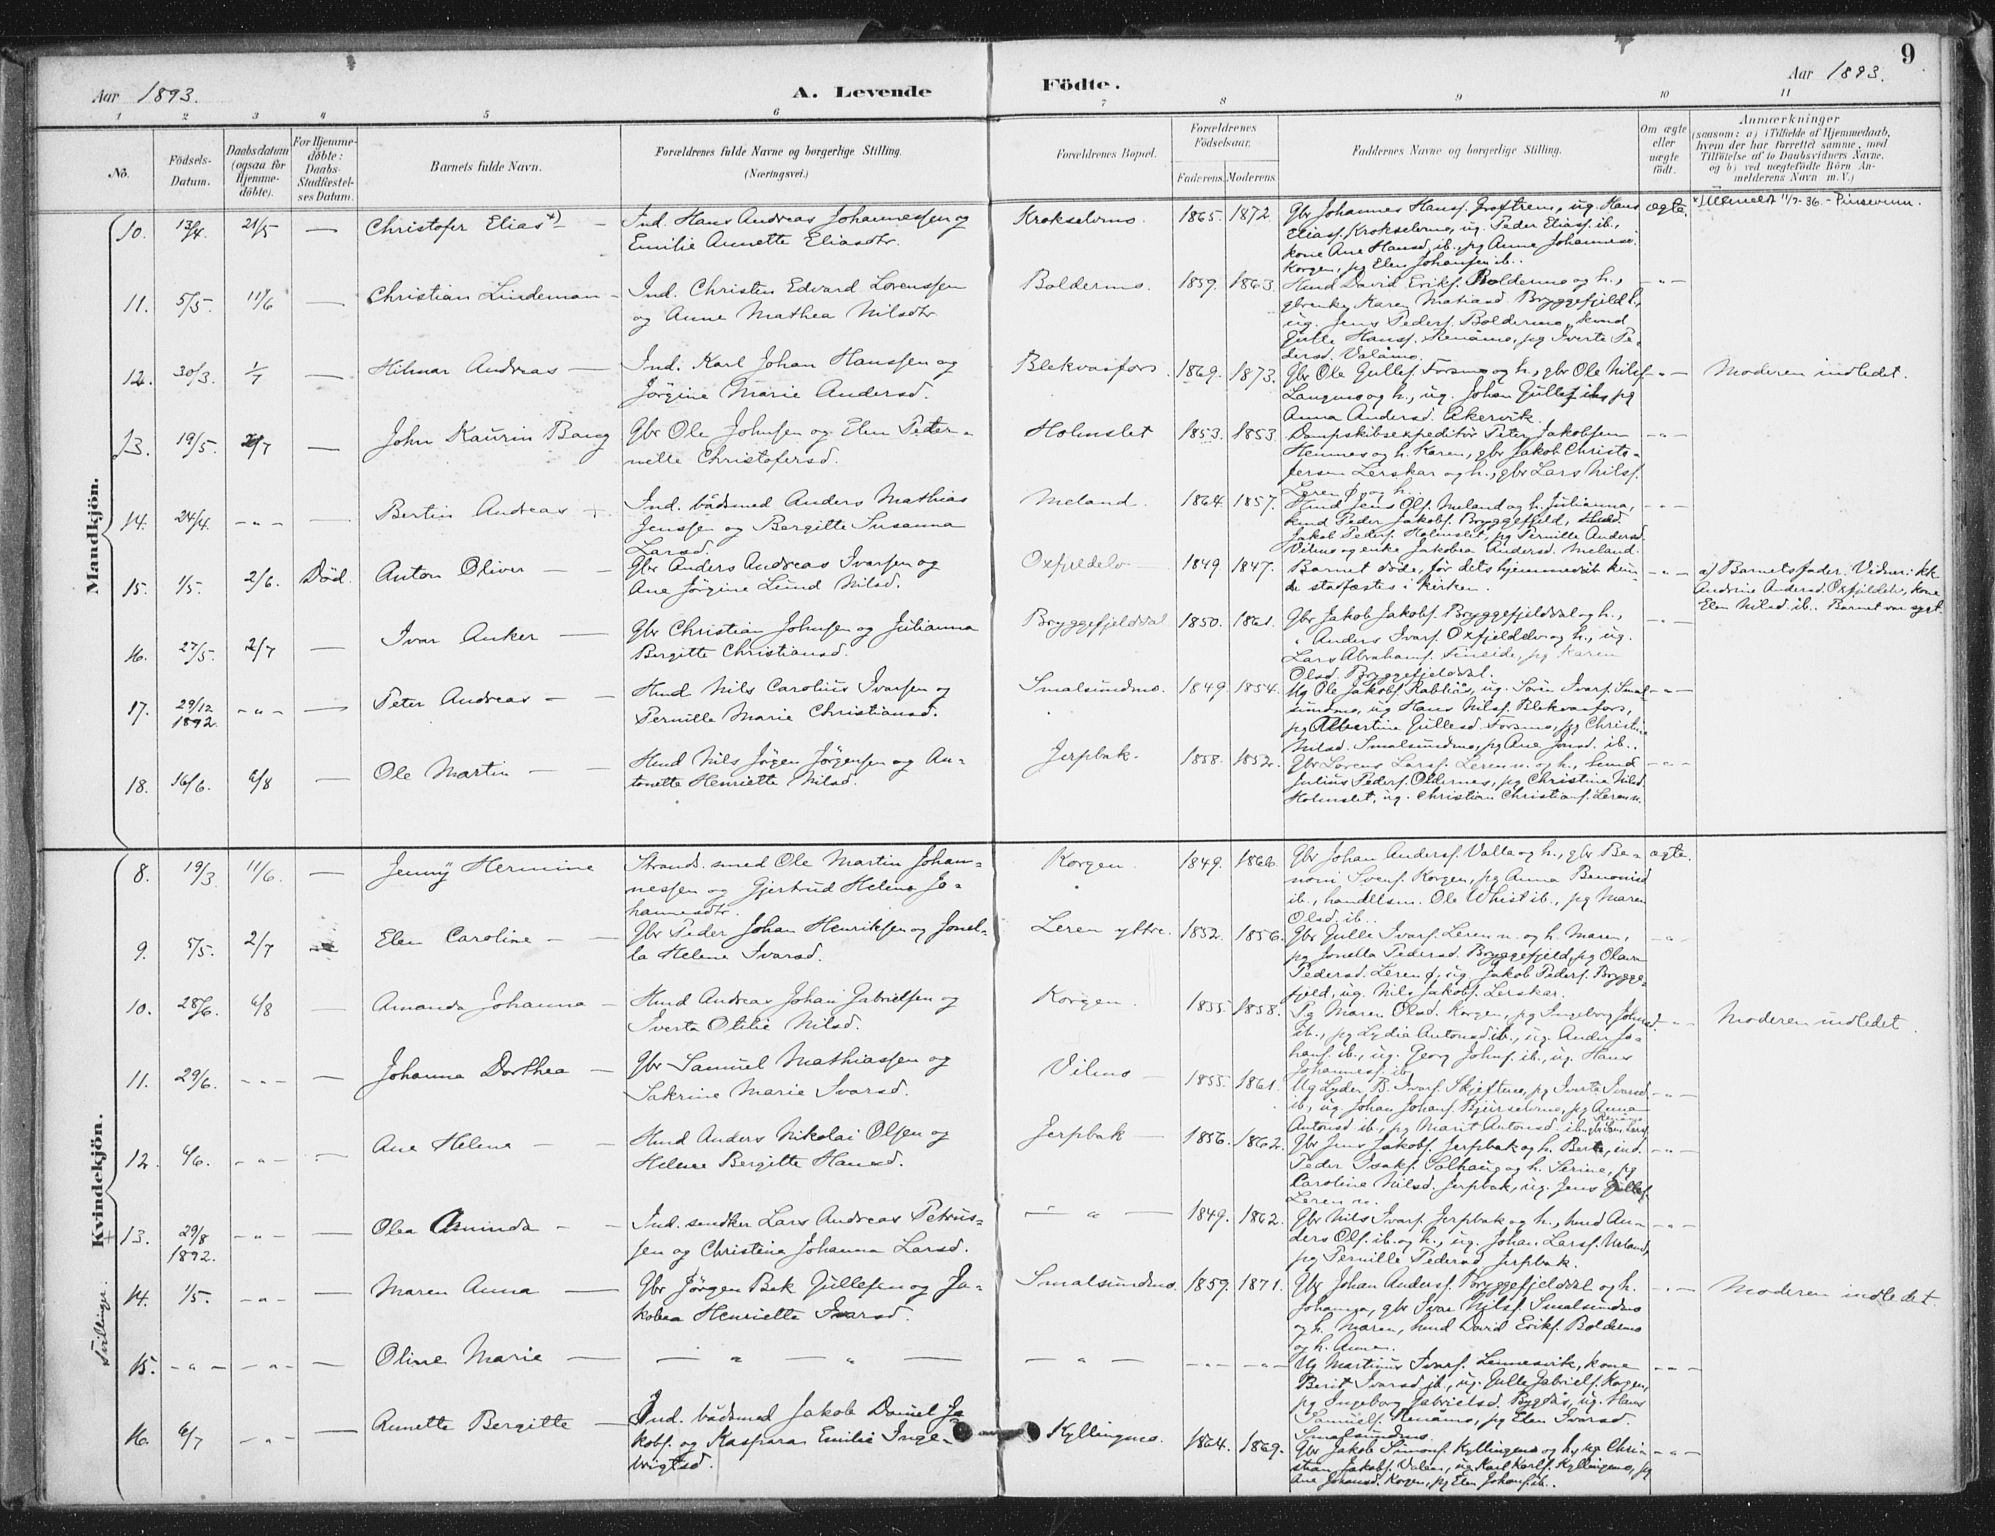 9
Aar 1893.
A. Levende
Födte.
Aar 1893.
1 2 3 4 5 6 7 8 9 10 11
No.
Födsels-
Datum.
Daabsdatum
(ogsaa for
Hjemme-
döbte).
For Hjemme-
döbte:
Daabs-
Stadfæstel-
ses Datum.
Barnets fulde Navn.
Forældrenes fulde Navne og borgerlige Stilling.
(Næringsvei.)
Forældrenes Bopæl.
Forældrenes
Födselsaar.
Faderens. Moderens.
Faddernes Navne og borgerlige Stilling.
Om ægte
eller
uægte
födt.
Anmærkninger
(saasom: a) i Tilfælde af Hjemmedaab,
hvem der har forrettet samme, med
Tilföielse af to Daabsvidners Navne,
og b) ved uægtefödte Börn An-
melderens Navn m. V.)
Mandkjön.
10. 13/4. 21/5 — Christofer Elias *) — Ind. Hans Andreas Johannessen og
Emilie Annette Eliasdtr.
Krokselvmo. 1865. 1872.
Gbr Johannes Hansf. ug. Hans
Eliasf. Krokselvmo, ug. Peder Eliasf. ib.,
kone Ane Hansd. ib., pg Anne Johannesd.
Korgen, pg Elen Johansen ib..
ægte.
*) Utmeldt 11/7-36. - Pinseven.
11. 5/5. 11/6 — Christian Lindeman — Ind. Christen Edvard Lorenssen
og Anne Mathea Nilsdtr.
Boldermo. 1859. 1863.
Hmd David Erikf. Boldermo og h.,
gbrenke Karen Matiasd. Bryggefjeld,
ug. Jens Pedersf. Boldermo,
Gulle Hansf. Renåmo, pg Iverte Pe-
dersd. Valåmo.
— " —
12. 30/3. 1/7 — Hilmar Andreas — Ind. Karl Johan Hanssen og
Jörgine Marie Andersd.
Blekvasfors. 1869. 1873.
Gbr Ole Gullef. Forsmo og h., gbr Ole Nilsf.
Langmo og h., ug. Johan Gullef. ib., pg
Anna Andersd. Akervik.
— " — Moderen indledet.
13. 19/5. 2/7 — John Kaurin Bang Gbr Ole Johnsen og Elen Peter-
nelle Christofersd.
Holmslet 1853. 1853.
Dampskibsexpeditör Peter Jakobsen
Hemnes og h. Karen, gbr Jakob Christo-
fersen Lerskar og h., gbr Lars Nilsf.
Leren ö. og h..
— " —
14. 24/4. — " — — Bertin Andreas — Ind. bådsmed Anders Mathias
Jenssen og Bergitte Susanna
Larsd.
Meland. 1864. 1857.
Hmd Jens Olf. Meland og h. Julianna,
hmd Peder Jakobf. Bryggefjeld,
Jakob Pedersf. Holmslet, pg Pernille Andersd.
Vilmo og enke Jakobea Andersd. Meland.
— " —
15. 1/5. 2/6. Död. Anton Oliver — — Gbr Anders Andreas Ivarsen og
Ane Jörgine Lund Nilsd.
Oxfjeldelv — 1849. 1847.
Barnet döde, för dets hjemmedåb kun-
de stadfæstes i kirken.
— " — a) Barnets fader. Vidner: kk
Andrine Andersd. Oxfjeldelv, kone
Elen Nilsd. ib. Barnet var sygt.
16. 27/5. 2/7 — Ivar Anker — Gbr Christian Johnsen og Julianna
Bergitte Christiansd.
Bryggefjelddal 1850. 1861.
Gbr Jakob Jakobf. Bryggefjelddal og h.,
" Anders Ivarf. Oxfjeldelv og h., ug.
Lars Abrahamf. Fineide, pg Karen
Olsd. Bryggefjelddal.
— " —
17. 29/12
1892. — " — — Peter Andreas — — Hmd Nils Carolius Ivarsen og
Pernille Marie Christiansd.
Smalsundmo. 1849. 1854.
Ug Ole Jakobf. Rabliås, ug. Sören Ivarf. Smal-
sundmo, ug Hans Nilsf. Blekvasfors,
pg Albertine Gullesd. Forsmo, pg Christine
Nilsd. Smalsundmo, pg Ane Jonsd. ib..
— " —
18. 16/6. 6/8 — Ole Martin — — Hmd Nils Jörgen Jörgensen og An-
tonette Henriette Nilsd.
Jerpbak. 1858. 1852.
Gbr Lorens Larsf. Leren n. og h., hmd
Julius Pedersf. Oldernes, pg Christine Nilsd.
Holmslet, ug. Christian Christianf. Leren n.
— " —
Kvindekjön.
8. 19/3 11/6. — Jenny Hermine Strands. smed Ole Martin Johan-
nessen og Gjertrud Helene Jo-
hannesdtr.
Korgen. 1849. 1866.
Gbr Johan Andersf. Valla og h., gbr Be-
noni Svenf. Korgen, pg Anna Benonisd.
ib., handelsm. Ole Whist ib., pg Maren
Olsd. ib..
ægte.
9. 5/5. 2/7 Elen Caroline — — Gbr Peder Johan Henriksen og Jonel-
la Helene Ivarsd.
Leren yttre. 1852. 1856.
Gbr Gulle Ivarf. Leren n. og h. Maren,
pg Jonella Pedersd. Bryggefjeld, pg Olava
Pedersd. Leren ö, ug. Jakob Pedersf. Brygge-
fjeld, ug. Nils Jakobf. Lerskar.
— " —
10. 28/6. 6/8 — Amanda Johanna — Hmd Andreas Johan Gabrielsen og
Iverta Otilie Nilsd.
Korgen. 1855. 1858.
Pg Maren Olsd. Korgen, pg Ingeborg Johnsd.
ib., pg Lydia Antonsd. ib., ug. Ander Jo-
hanf. ib., ug. Georg Johnf. ib., ug. Hans
Johannesf. ib.
" — Moderen indledet.
11. 29/6. — " — — Johanna Dorthea — Gbr Samuel Mathiassen og
Sakrine Marie Ivarsd.
Vilmo — 1855. 1861.
Ug Lyder B. Ivarf. Skjeftmo, pg Iverta Ivarsd.
ib., ug. Johan Johanf. Bjurselvmo, pg Anna
Antonsd. ib., pg Marit Antonsd. ib.
— " —
12. 6/6. — " — — Ane Helene — — Hmd Anders Nikolai Olsen og
Helene Bergitte Hansd.
Jerpbak — 1856. 1862.
Gbr Jens Jakobf. Jerpbak og h. Berte, ind.
Peder Isakf. Solhaug og h. Serine, pg
Caroline Nilsd. Jerpbak, ug. Jens Gullef.
Leren n.
— " —
13. 29/8
1892. — " — — Olea Aminda — — Ind. smdkr Lars Andreas Petrus-
sen og Christine Johanna Larsd.
— " — 1849. 1862.
Gbr Nils Ivarf. Jerpbak og h., hmd An-
ders Olf. ib. og h., ug. Johan Larsf. Meland,
pg Pernille Pedersd. Jerpbak.
— " —
Tvillinger.
14. 1/5. — " — — Maren Anna — Gbr Jörgen Bek Gullesen og Ja-
kobea Henriette Ivarsd.
Smalsundmo. 1859. 1871.
Gbr Johan Andersf. Bryggefjelddal og h.
Johanna, gbr Ivar Nilsf. Smalsundmo
og h. Maren, hmd David Erikf. Boldermo
og h. Anne.
— " — Moderen indledet.
15. — " — — " — — Oline Marie — — " — " —
— " — — " — — " —
Ug Martinus Ivarf. Lennesvik, kone
Berit Ivarsd. ib., ug. Gulle Gabrielf. Korgen,
pg Ingeborg Gabrielsd. Bygdås, ug. Hans
Samuelf. Renåmo, pg Elen Ivarsd.
Smalsundmo.
— " —
16. 6/7 — " — — Annette Bergitte — Ind. bådsmed Jakob Daniel Ja-
kobf. og Kaspara Emilie Inge-
brigtsd.
Kyllingmo. 1864. 1869.
Gbr Jakob Simonf. Kyllingmo og h., ug Chri-
stian Jakobf. Valaan, ug Karl Karlf. Kyllingmo, pg
Ane Johansd. Korgen, pg Elen Johansf. ib..
— " —